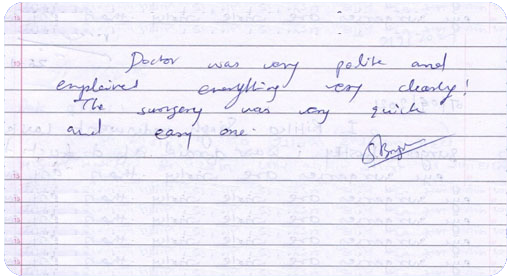 Doctor was very polite and
explained everything very clearly!
The surgery was very quick
and easy one.